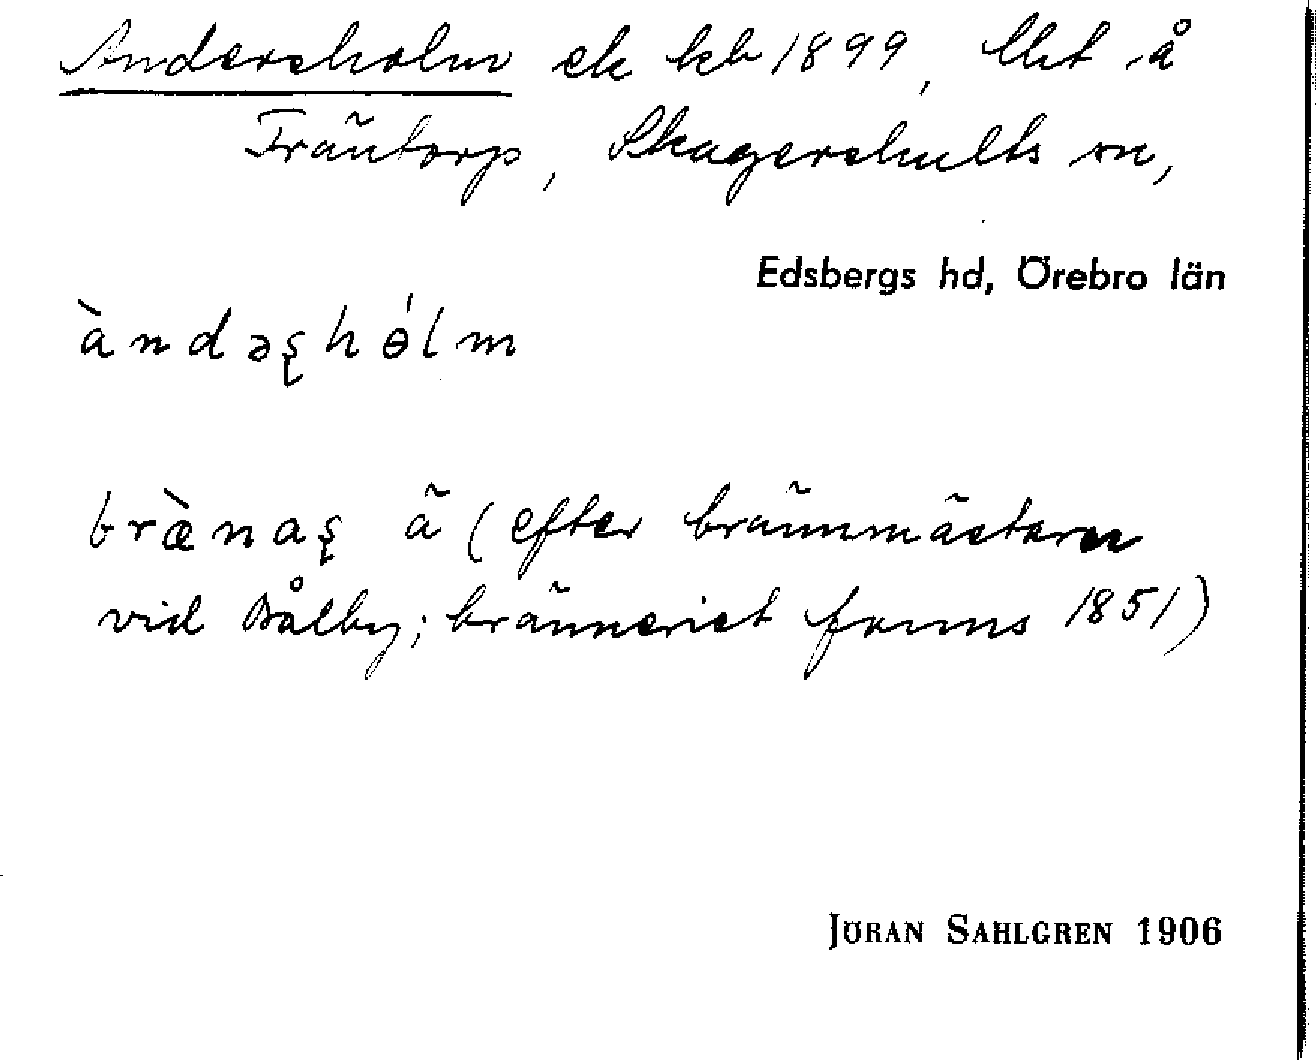 Andersholm ek kb 1899, lht å
Fräntorp, Skagershults sn,
Edsbergs hd, Örebro län
àndəʂhɵ́lm
bræ̀naʂ ä (efter brännmästaren
vid Bålby; bränneriet fanns 1851)
JÖRAN SAHLGREN 1906